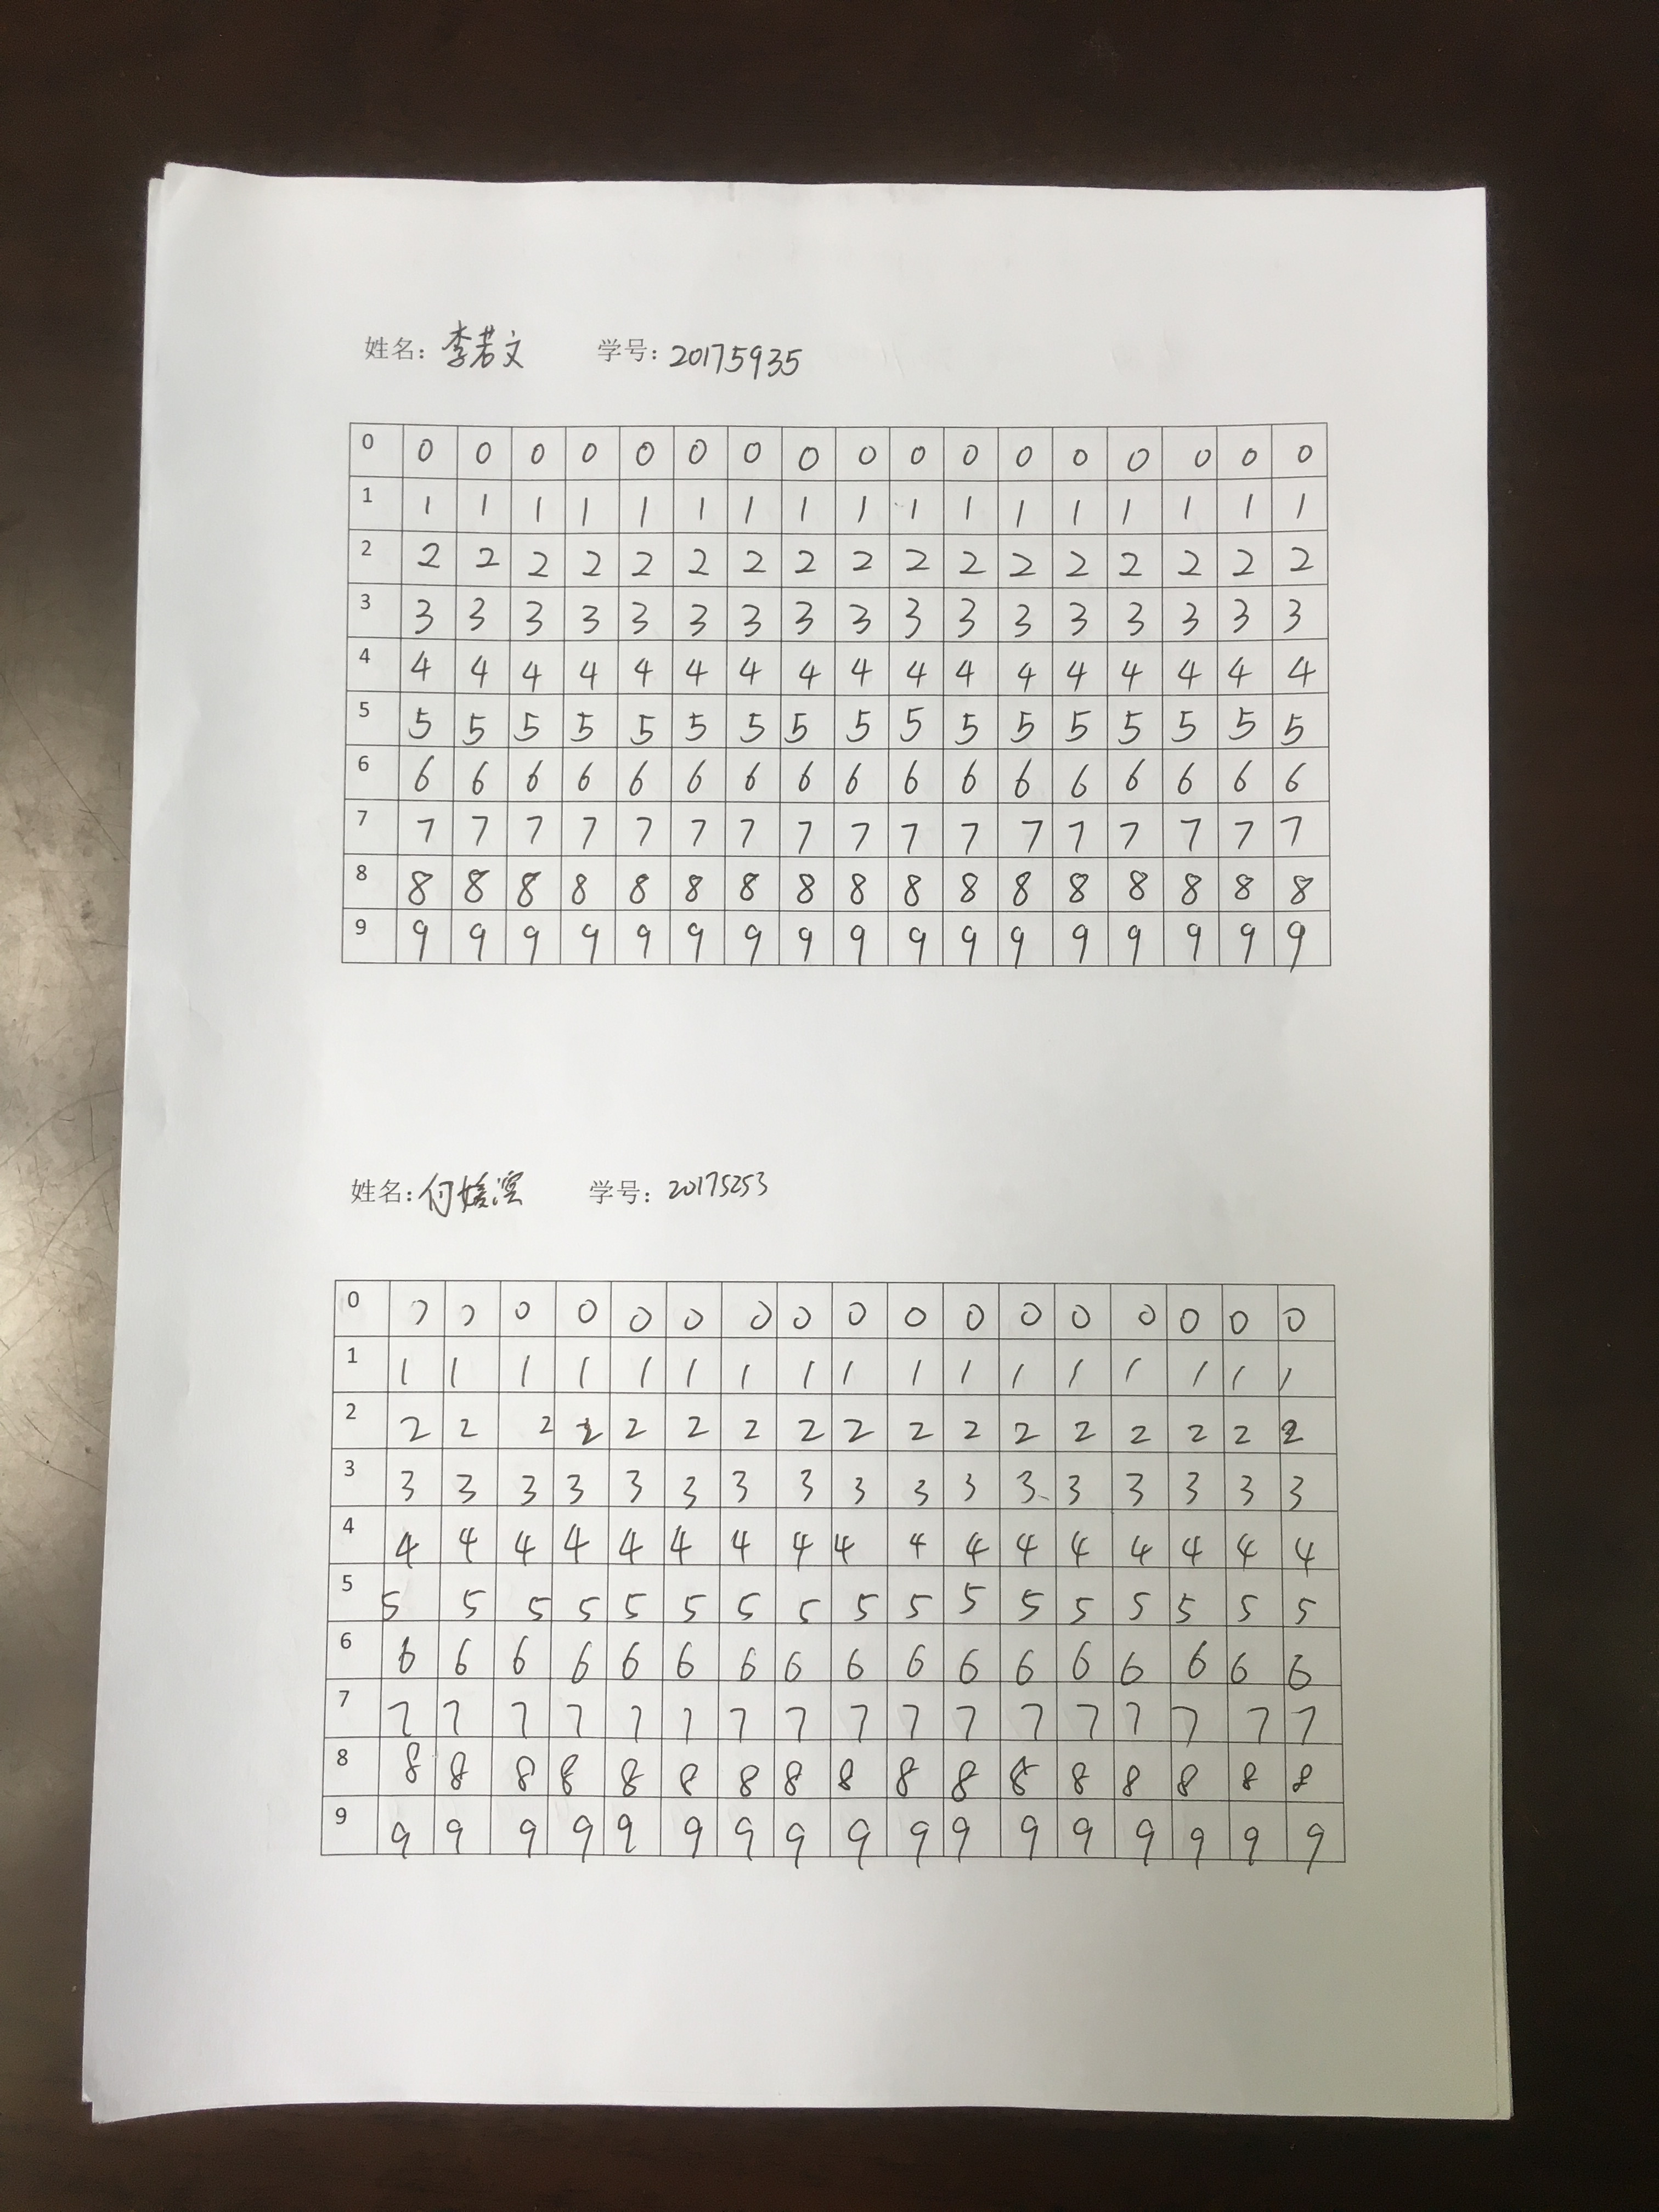 姓名：李若文 学号：20175935
0 0 0 0 0 0 0 0 0 0 0 0 0 0 0 0 0 0
1 1 1 1 1 1 1 1 1 1 1 1 1 1 1 1 1 1
2 2 2 2 2 2 2 2 2 2 2 2 2 2 2 2 2 2
3 3 3 3 3 3 3 3 3 3 3 3 3 3 3 3 3 3
4 4 4 4 4 4 4 4 4 4 4 4 4 4 4 4 4 4
5 5 5 5 5 5 5 5 5 5 5 5 5 5 5 5 5 5
6 6 6 6 6 6 6 6 6 6 6 6 6 6 6 6 6 6
7 7 7 7 7 7 7 7 7 7 7 7 7 7 7 7 7 7
8 8 8 8 8 8 8 8 8 8 8 8 8 8 8 8 8 8
9 9 9 9 9 9 9 9 9 9 9 9 9 9 9 9 9 9
姓名： 学号：20175253
0 0 0 0 0 0 0 0 0 0 0 0 0 0 0 0 0 0
1 1 1 1 1 1 1 1 1 1 1 1 1 1 1 1 1 1
2 2 2 2 2 2 2 2 2 2 2 2 2 2 2 2 2 2
3 3 3 3 3 3 3 3 3 3 3 3 3 3 3 3 3 3
4 4 4 4 4 4 4 4 4 4 4 4 4 4 4 4 4 4
5 5 5 5 5 5 5 5 5 5 5 5 5 5 5 5 5 5
6 6 6 6 6 6 6 6 6 6 6 6 6 6 6 6 6 6
7 7 7 7 7 7 7 7 7 7 7 7 7 7 7 7 7 7
8 8 8 8 8 8 8 8 8 8 8 8 8 8 8 8 8 8
9 9 9 9 9 9 9 9 9 9 9 9 9 9 9 9 9 9